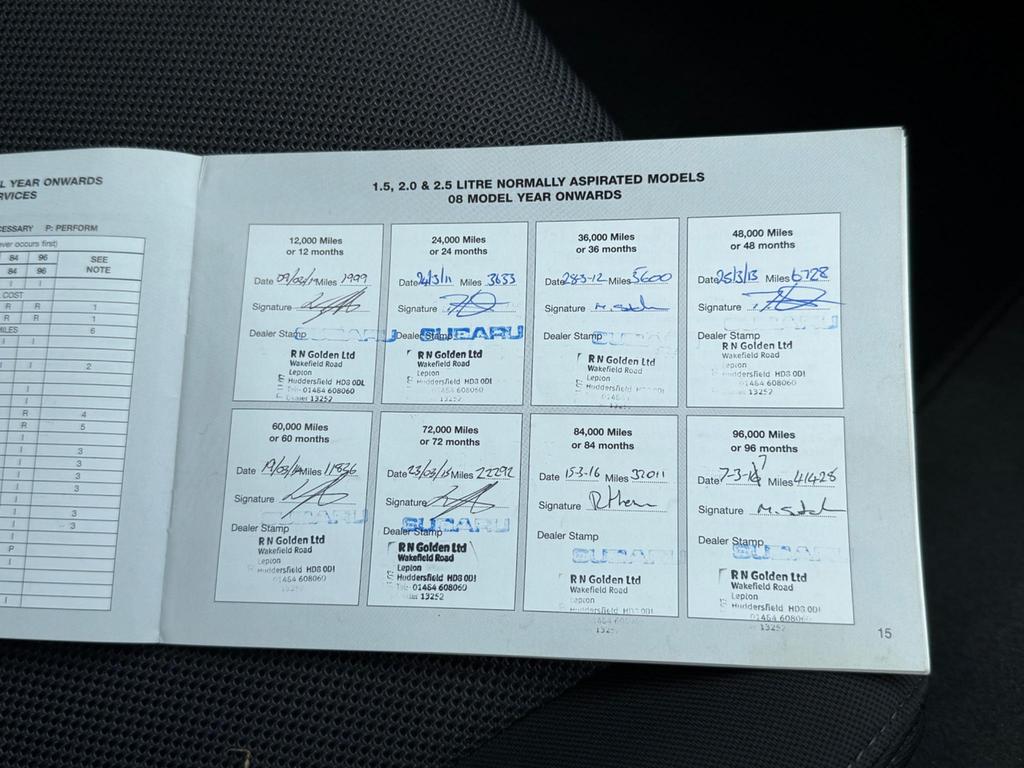 L YEAR ONWARDS
RVICES
CESSARY P: PERFORM
ever occurs first)
84 96 SEE
84 96 NOTE
I I
COST
R R 1
R R 1
MILES 6
I I
I I 2
I
I
R 4
R 5
I
I 3
I 3
I 3
I 3
I
I 3
I 3
I
P
I
I
1.5, 2.0 & 2.5 LITRE NORMALLY ASPIRATED MODELS
08 MODEL YEAR ONWARDS
12,000 Miles
or 12 months
Date Miles 1999
Signature
Dealer Stamp
SUBARU
R N Golden Ltd
Wakefield Road
Lepton
Huddersfield HD8 0DL
Tel: 01484 608060
Dealer 13252
24,000 Miles
or 24 months
Date 24/3/11 Miles 3653
Signature
Dealer Stamp
SUBARU
R N Golden Ltd
Wakefield Road
Lepton
Huddersfield HD8 0DL
01484 608060
13252
36,000 Miles
or 36 months
Date 28-3-12 Miles 5600
Signature
Dealer Stamp
SUBARU
R N Golden Ltd
Wakefield Road
Lepton
Huddersfield HD8 0DL
48,000 Miles
or 48 months
Date 25/3/13 Miles 6728
Signature
Dealer Stamp
SUBARU
R N Golden Ltd
Wakefield Road
Lepton
Huddersfield HD8 0DL
01484 608060
13252
60,000 Miles
or 60 months
Date 19/03/14 Miles 11836
Signature
Dealer Stamp
SUBARU
R N Golden Ltd
Wakefield Road
Lepton
Huddersfield HD8 0DL
01484 608060
13252
72,000 Miles
or 72 months
Date 23/03/15 Miles 22292
Signature
Dealer Stamp
SUBARU
R N Golden Ltd
Wakefield Road
Lepton
Huddersfield HD8 0DL
Tel: 01484 608060
13252
84,000 Miles
or 84 months
Date 15-3-16 Miles 32011
Signature
Dealer Stamp
SUBARU
R N Golden Ltd
Wakefield Road
Lepton
Huddersfield HD8 0DL
01484 608060
13252
96,000 Miles
or 96 months
Date 7-3-17 Miles 41428
Signature
Dealer Stamp
SUBARU
R N Golden Ltd
Wakefield Road
Lepton
Huddersfield HD8 0DL
01484 608060
13252
15